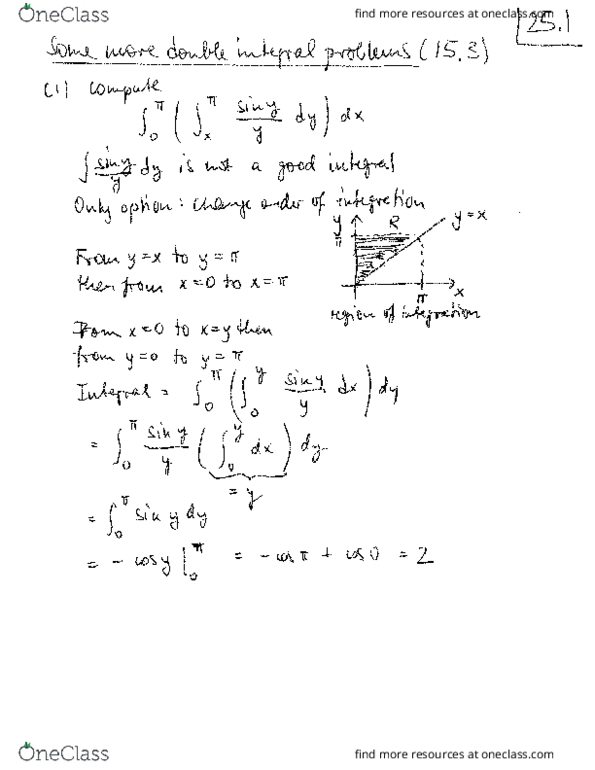 OneClass
find more resources at oneclass.com
25.1
Some more double integral problems (15.3)
(1) compute
∫₀^π ( ∫ₓ^π sin y / y dy ) dx
∫ sin y / y dy is not a good integral
Only option: change order of integration
y R y=x
π
From y=x to y=π
then from x=0 to x=π
π x
region of integration
From x=0 to x=y then
from y=0 to y=π
Integral = ∫₀^π ( ∫₀^y sin y / y dx ) dy
= ∫₀^π sin y / y ( ∫₀^y dx ) dy
= y
= ∫₀^π sin y dy
= - cos y |₀^π = - cos π + cos 0 = 2
OneClass
find more resources at oneclass.com